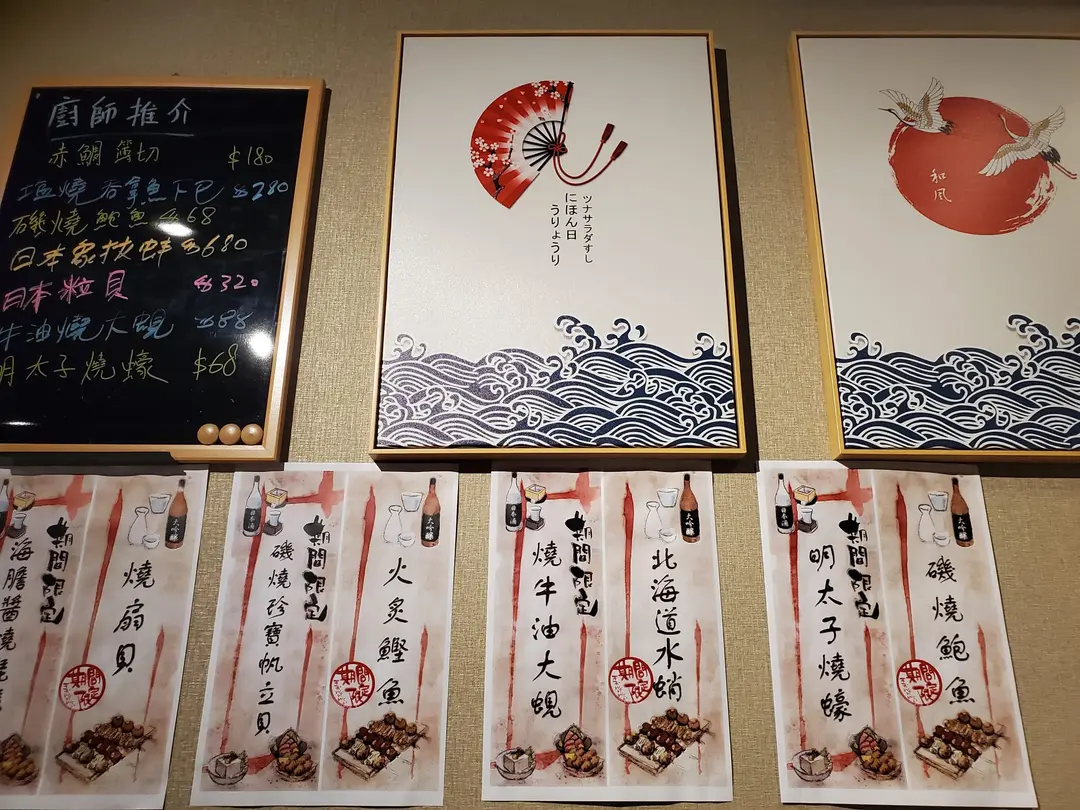 廚師推介
赤鯛薄切 $180
塩燒吞拿魚下巴 $280
磯燒鮑魚 $68
日本象拔蚌 $680
日本粒貝 $320
牛油燒大蜆 $88
明太子燒蠔 $68
ツナサラダすし
にほん日
うりょうり
和風
大吟醸
燒扇貝
期間限定
海膽醬燒
日本酒
大吟醸
火炙鰹魚
期間限定
磯燒珍寶帆立貝
日本酒
大吟醸
北海道水蛸
期間限定
燒牛油大蜆
日本酒
大吟醸
磯燒鮑魚
期間限定
明太子燒蠔